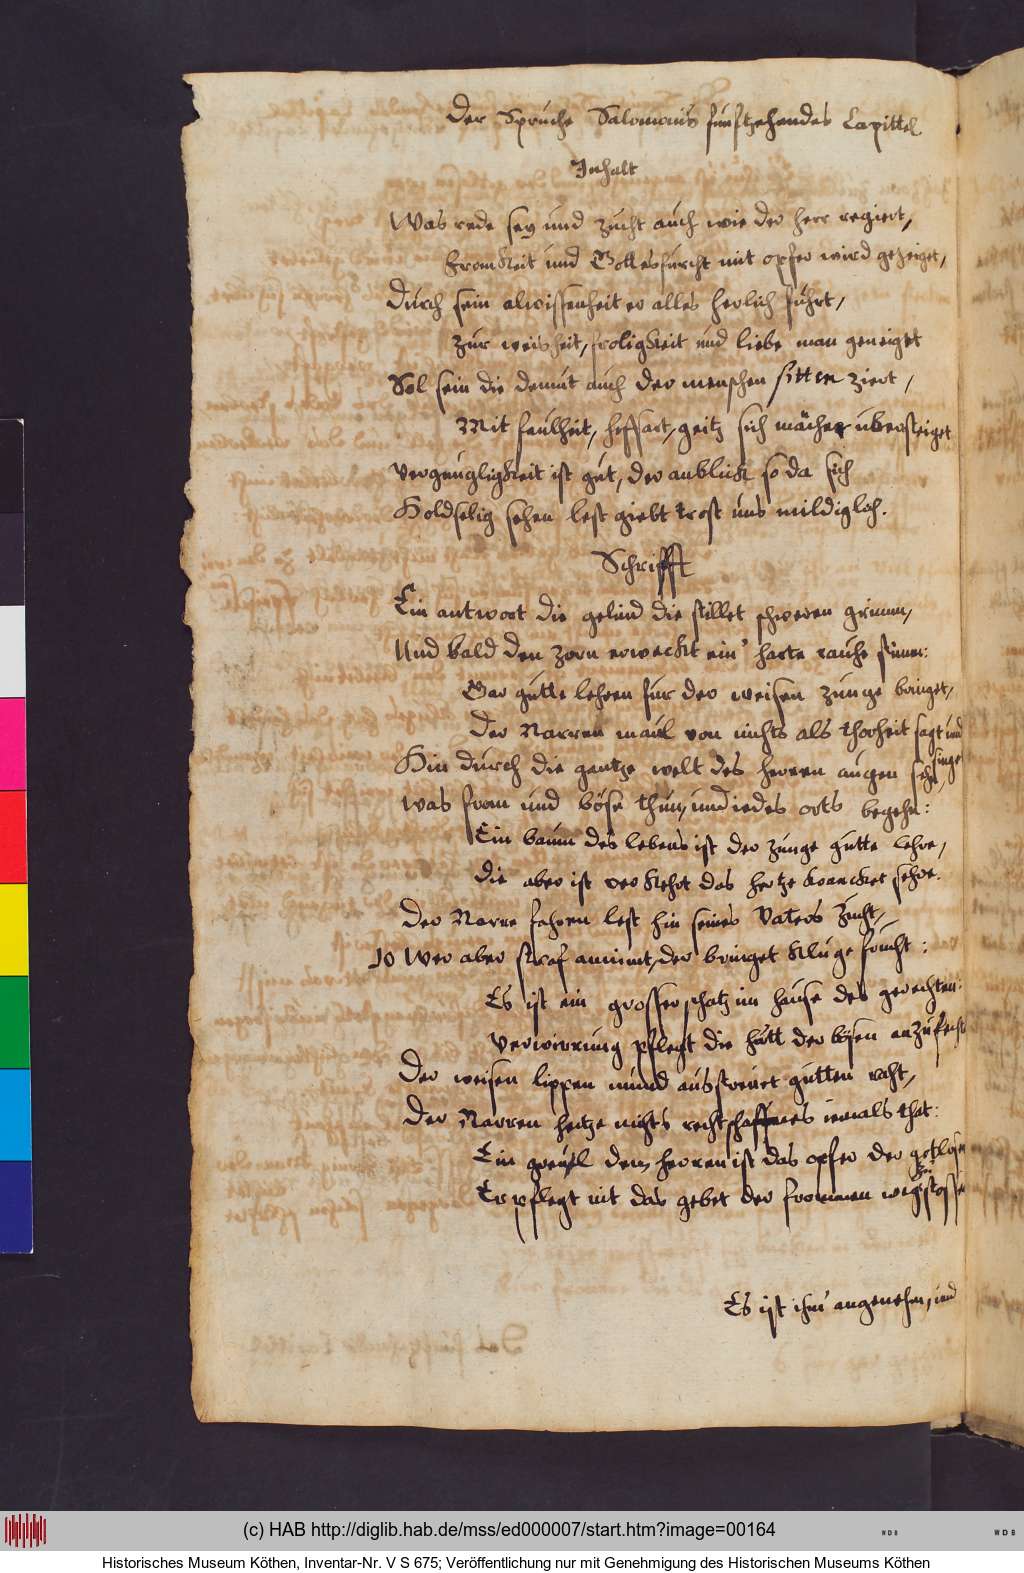 Der Sprüche Salomonis funftzehendes Capittel.
Inhalt
Was rede sey und zucht auch wie der herr regiert,
Fromkeit und Gottesfurcht mit opfer wird gezeiget,
Durch sein alwissenheit er alles herlich führt,
zur weisheit, froligkeit und liebe man geneiget
Sol sein die demut auch der menschen sitten ziert,
Mit faulheit, hoffart, geitz sich mächer übersteiget
Vergnugligkeit ist gut, der anblick so da sich
Holdselig sehen lest giebt trost uns mildiglich.
Schrifft
Ein antwort die gelind die stillet schweren grimm,
Und bald den zorn erweckt ein' harte rauhe stimm:
Gar gutte lehren für der weisen zunge bringet,
Der Narren maul von nichts als thorheit sagt und
singet
Hin durch die gantze welt des herren augen sehn,
Was from und böse thun, und iedes orts begehn:
Ein baum des lebens ist der zunge gutte lehre,
Die aber ist verkehrt das hertze krancket sehre.
Der Narre fahren lest hin seines Vaters Zucht,
10 Wer aber straf annimt, der bringet kluge frucht:
Es ist ein grosser schatz im hause des gerechten:
Verwirrung pflegt die hütt der bösen anzufecht
Der weisen lippen mund ausstreuet gutten raht,
Der Narren hertze nichts rechtschaffenes iemals that:
Ein greuel dem herren ist das opfer der gotlosen
Er pflegt nit das gebet der frommen wegzustossen
Es ist ihm angenehm, und
(c) HAB http://diglib.hab.de/mss/ed000007/start.htm?image=00164
WDB
WDB
Historisches Museum Köthen, Inventar-Nr. V S 675; Veröffentlichung nur mit Genehmigung des Historischen Museums Köthen